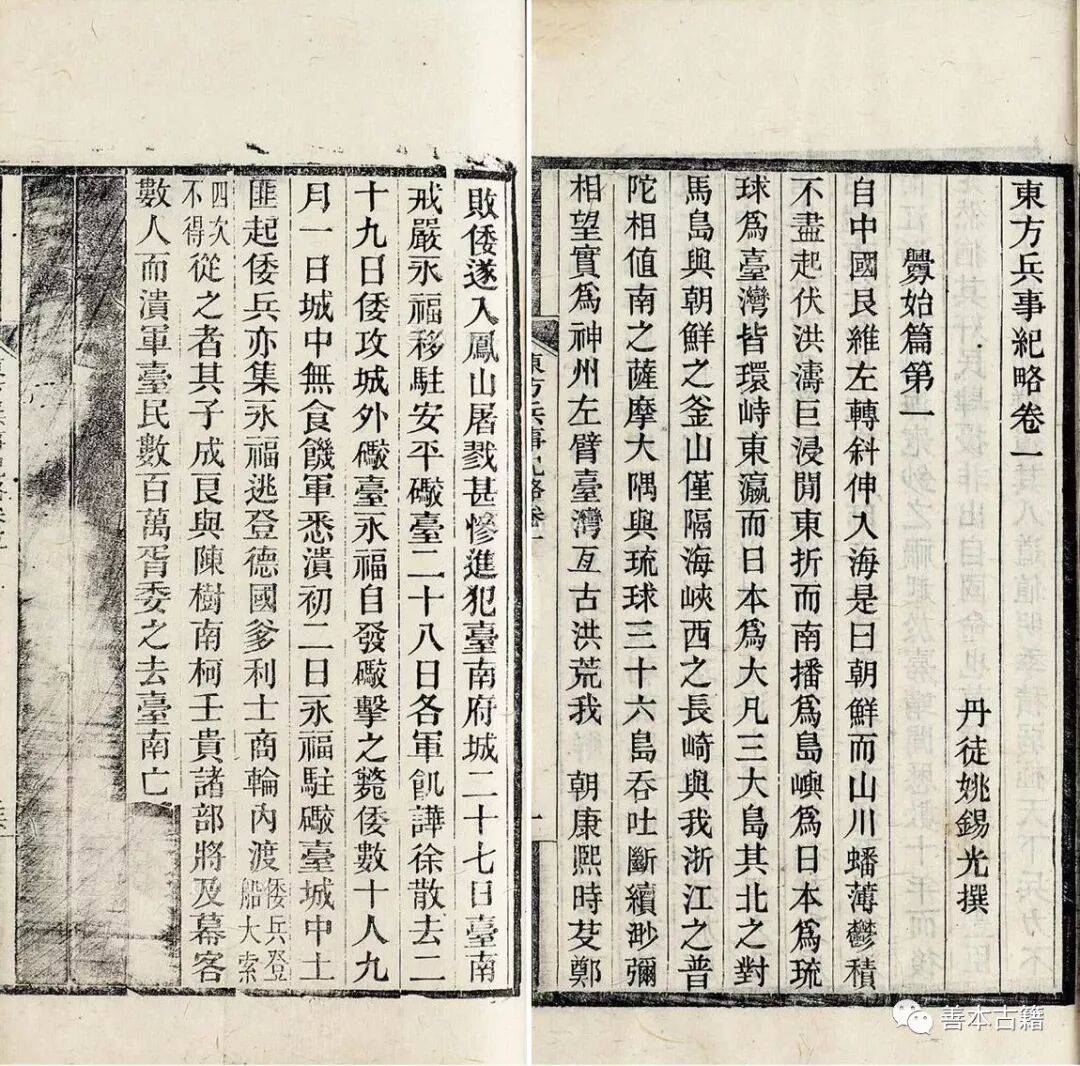 東方兵事紀略卷一
丹徒姚錫光撰
釁始篇第一
自中國艮維左轉斜伸入海是曰朝鮮而山川蟠薄鬱積
不盡起伏洪濤巨浸閒東折而南播爲島嶼爲日本爲琉
球爲臺灣皆環峙東瀛而日本爲大凡三大島其北之對
馬島與朝鮮之釜山僅隔海峽西之長崎與我浙江之普
陀相値南之薩摩大隅與琉球三十六島吞吐斷續渺彌
相望實爲神州左臂臺灣亙古洪荒我 朝康熙時芟鄭
敗倭遂入鳳山屠戮甚慘進犯臺南府城二十七日臺南
戒嚴永福移駐安平礮臺二十八日各軍飢譁徐散去二
十九日倭攻城外礮臺永福自發礮擊之斃倭數十人九
月一日城中無食饑軍悉潰初二日永福駐礮臺城中土
匪起倭兵亦集永福逃登德國爹利士商輪內渡倭兵登船大索
四次不得從之者其子成良與陳樹南柯壬貴諸部將及幕客
數人而潰軍臺民數百萬胥委之去臺南亡
東方兵事紀略卷一
善本古籍